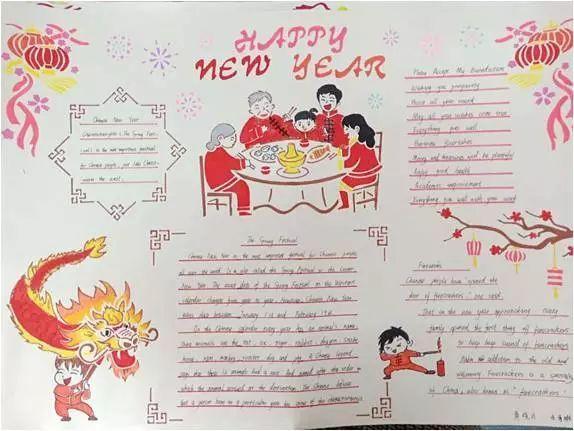 HAPPY
NEW YEAR
Chinese New Year
Chinese New Year is The Spring Festi-
val, is the most important festival
for Chinese people, just like Christ-
mas in the west.
Please Accept My Benediction
Wishing you prosperity
Peace all year round
May all your wishes come true
Everything goes well
Business flourishes
Money and treasures will be plentiful
Enjoy good health
Academic improvement
Everything goes well with your
The Spring Festival
Chinese New Year is the most important festival for Chinese people
all over the world. It is also called the Spring Festival or the Lunar
New Year. The exact date of the Spring Festival on the
calendar changes from year to year. However, Chinese New Year
takes place between January and February
On the Chinese calendar every year has an animal's name.
These animals are the rat, ox, tiger, rabbit, dragon, snake
horse, ram, monkey, rooster, dog and pig. A Chinese legend
says that these animals had a race and
which the animal arrived at the destination. The Chinese believe
that a person born in a particular year has some of the characteristics
Firecracker
Chinese people have
door of firecrackers" one said.
That in the new year approaching every
family opened the first thing of firecrackers
to beep beep sound of firecrackers
addition to the old and
welcoming. Firecrackers is a specialty
of China, also known as "firecrackers"